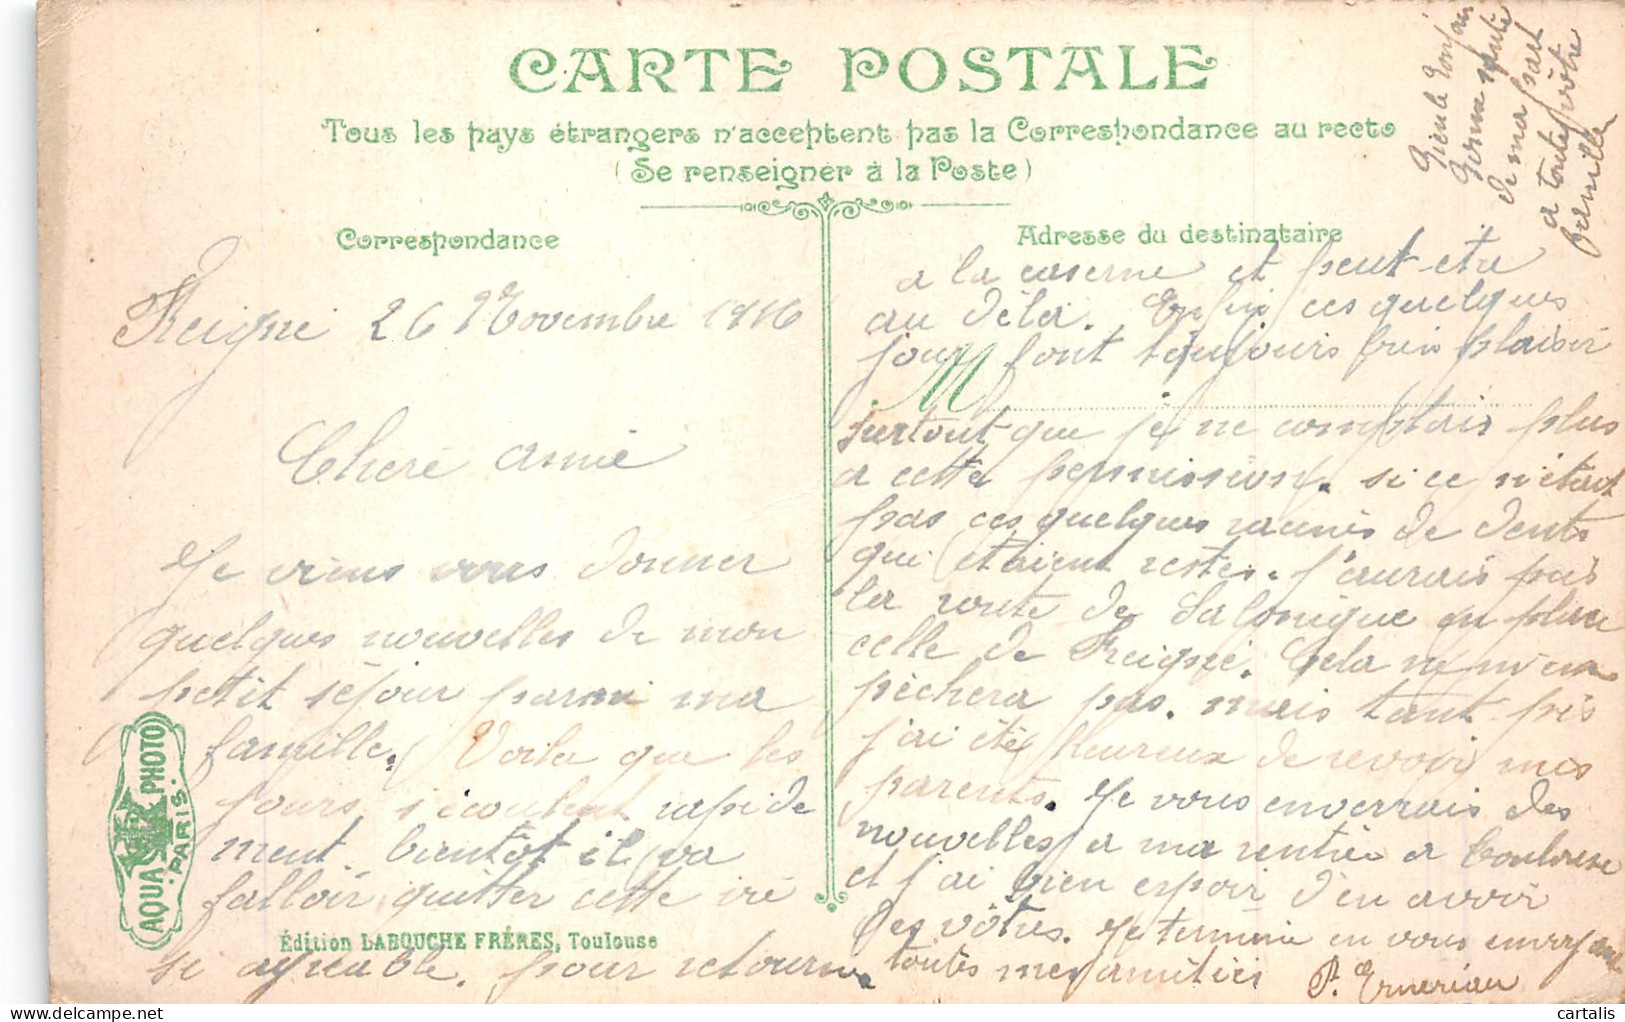 CARTE POSTALE
Tous les pays étrangers n'acceptent pas la Correspondance au recto
(Se renseigner à la Poste)
Correspondance
Adresse du destinataire
Reigné 26 Novembre 1916
Chere amie
Je viens vous donner
quelques nouvelles de mon
petit séjour parmi ma
famille. Voila que les
jours s'écoulent rapide
ment. bientôt il va
falloir quitter cette vie
si agréable. pour retourne
a la caserne et peut-etre
au dela. Enfin ces quelques
jours font toujours bien plaisir
M
surtout que je ne comptais plus
a cette permission. si ce n'etait
pas ces quelques racines de dents
qui etaient restes. j'aurais pris
la route de Salonique en place
celle de Reigné. Cela ne m'em
pèchera pas. mais tant pis
j'ai été heureux de revoir mes
parents. Je vous enverrais des
nouvelles a ma rentrée a Toulouse
et j'ai bien espoir d'en avoir
des vôtres. Je termine en vous envoyant
toutes mes amitiés
de ma part
a toute vôtre
famille
AQUA PHOTO
PARIS.
Édition LABOUCHE FRÈRES, Toulouse
cartalis